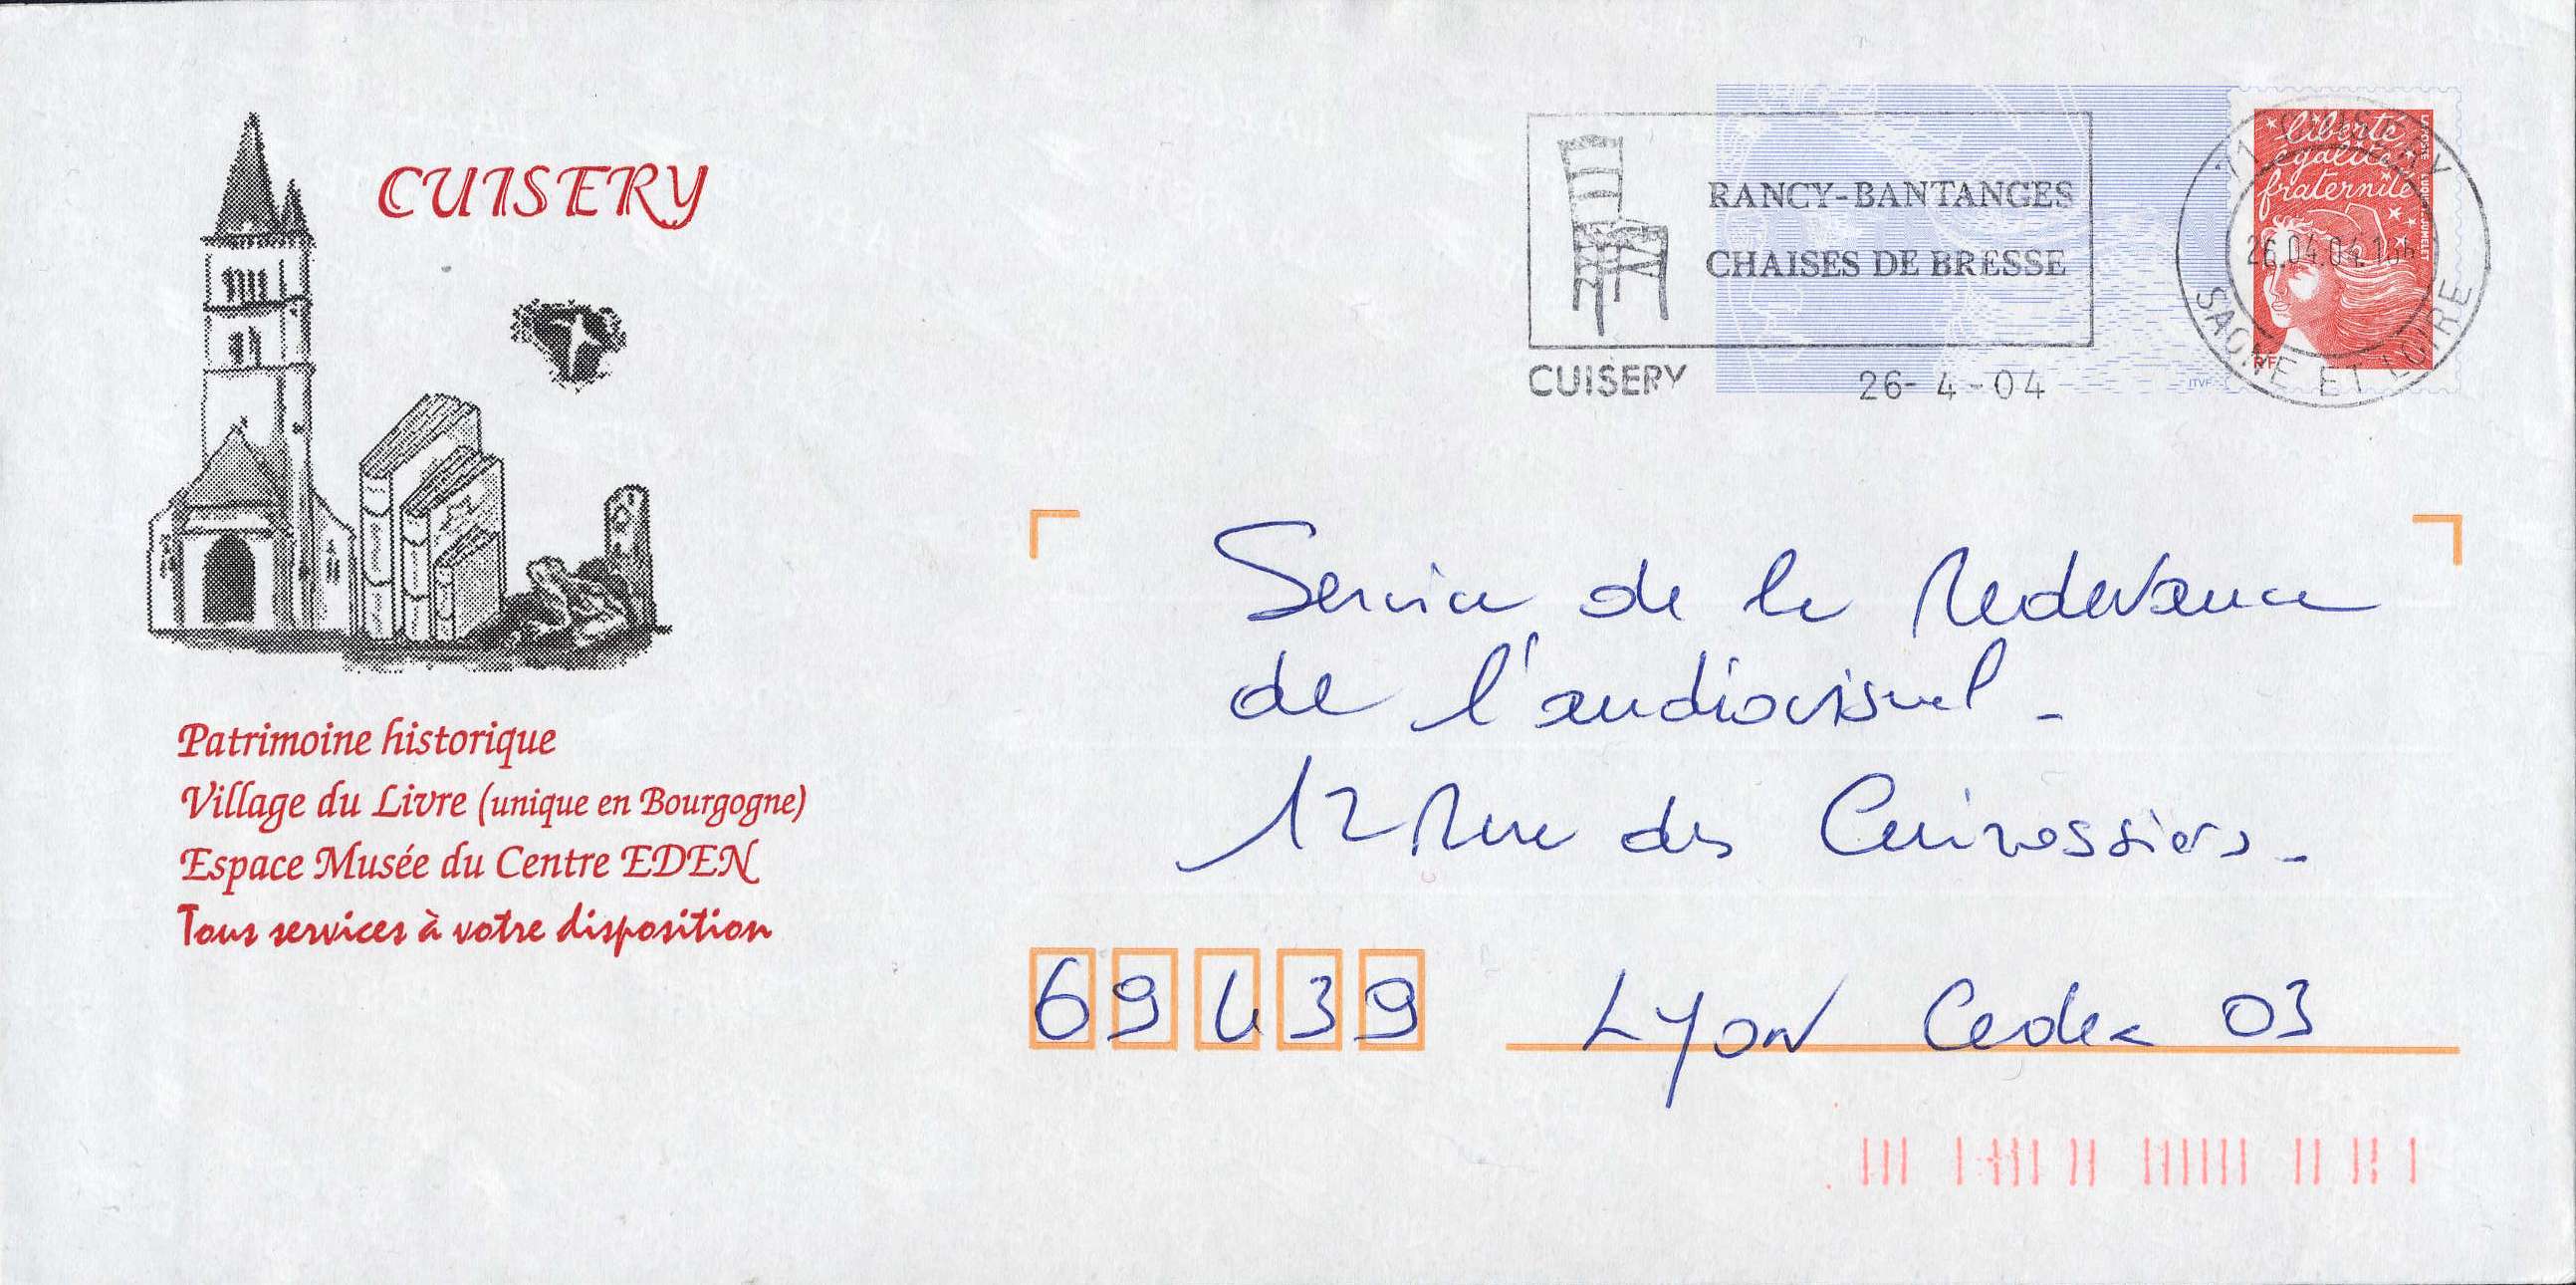 CUISERY
Patrimoine historique
Village du Livre (unique en Bourgogne)
Espace Musée du Centre EDEN
Tous services à votre disposition
RANCY-BANTANGES
CHAISES DE BRESSE
CUISERY
26-4-04
liberté
égalité
fraternité
RF
ITVF
71 CUISERY
26.04.04
SAONE ET LOIRE
Service de la Redevance
de l'audiovisuel -
12 Rue des Cuirassiers -
69439 Lyon Cedex 03